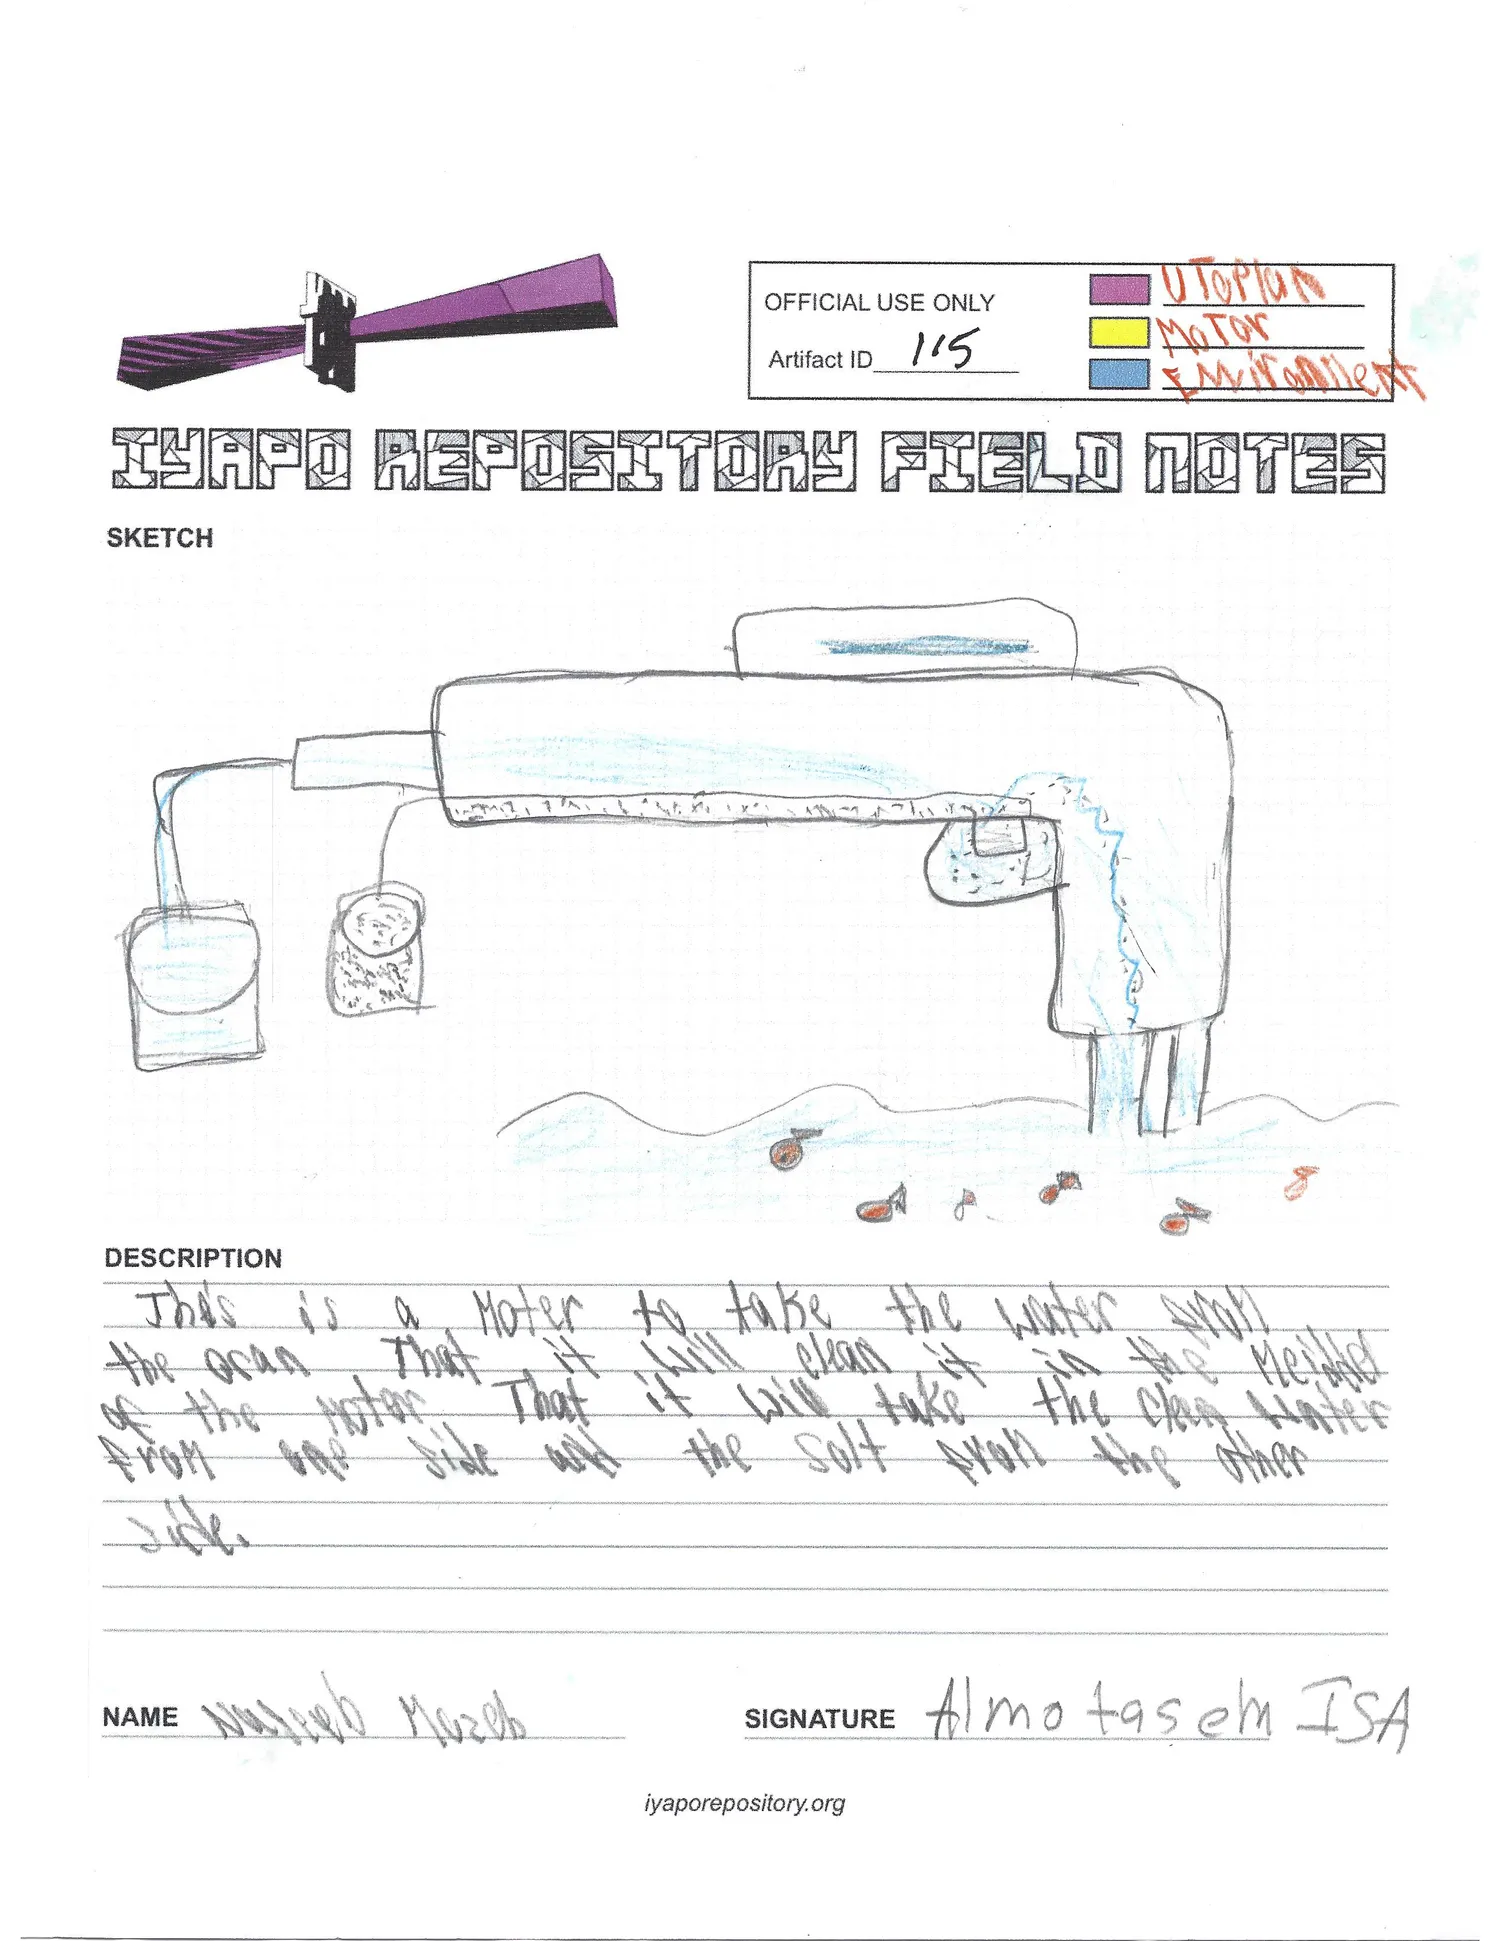 OFFICIAL USE ONLY
Artifact ID 115
UToPIan
MoTor
IYAPO REPOSITORY FIELD NOTES
SKETCH
DESCRIPTION
This is a Moter to take the water from
the ocan That it will clean it in the Meiddel
of the Motor That it will take the clean water
from one side and the Solt from the other
side.
NAME
SIGNATURE Almotasem ISA
iyaporepository.org